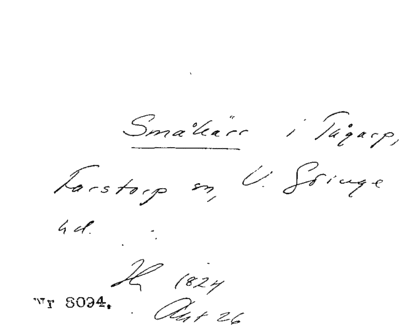 Småkärr i Tågarp,
Farstorp sn, V. Göinge
hd.
Hy 1824
Akt 26
Nr 8094.